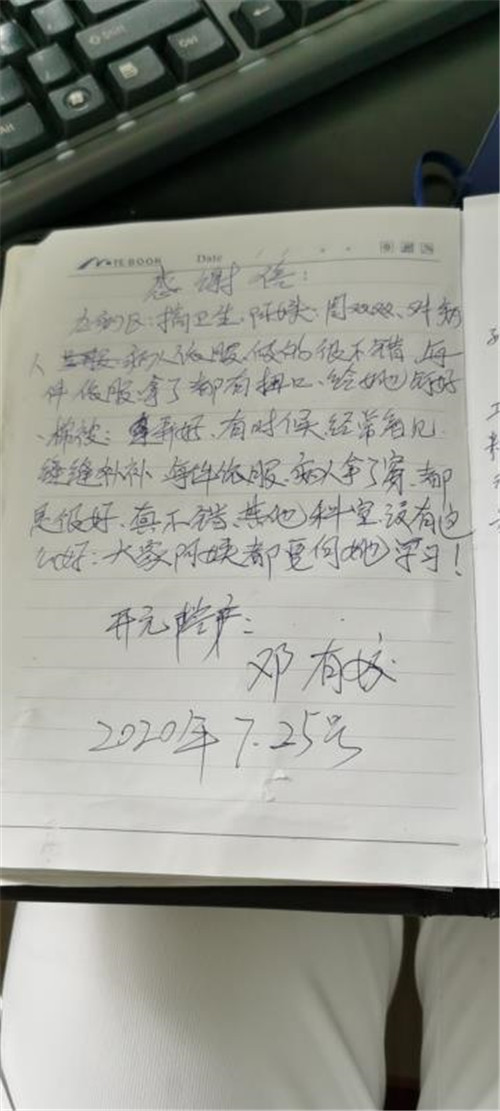 NOTEBOOK Date
感谢信:
五病区:搞卫生.阿姨:周双双、对病
人 病人依服.做的很不错.每
件依服.拿了都有扭口、给她钉好
棉被: 弄好、有时候经常看见
缝缝补补 每件依服.病人拿了穿.都
是很好、真不错、其他科室.没有这
么好:大家阿姨都更向她学习!
开元
邓有姣
2020年7.25号
Ctrl
Alt